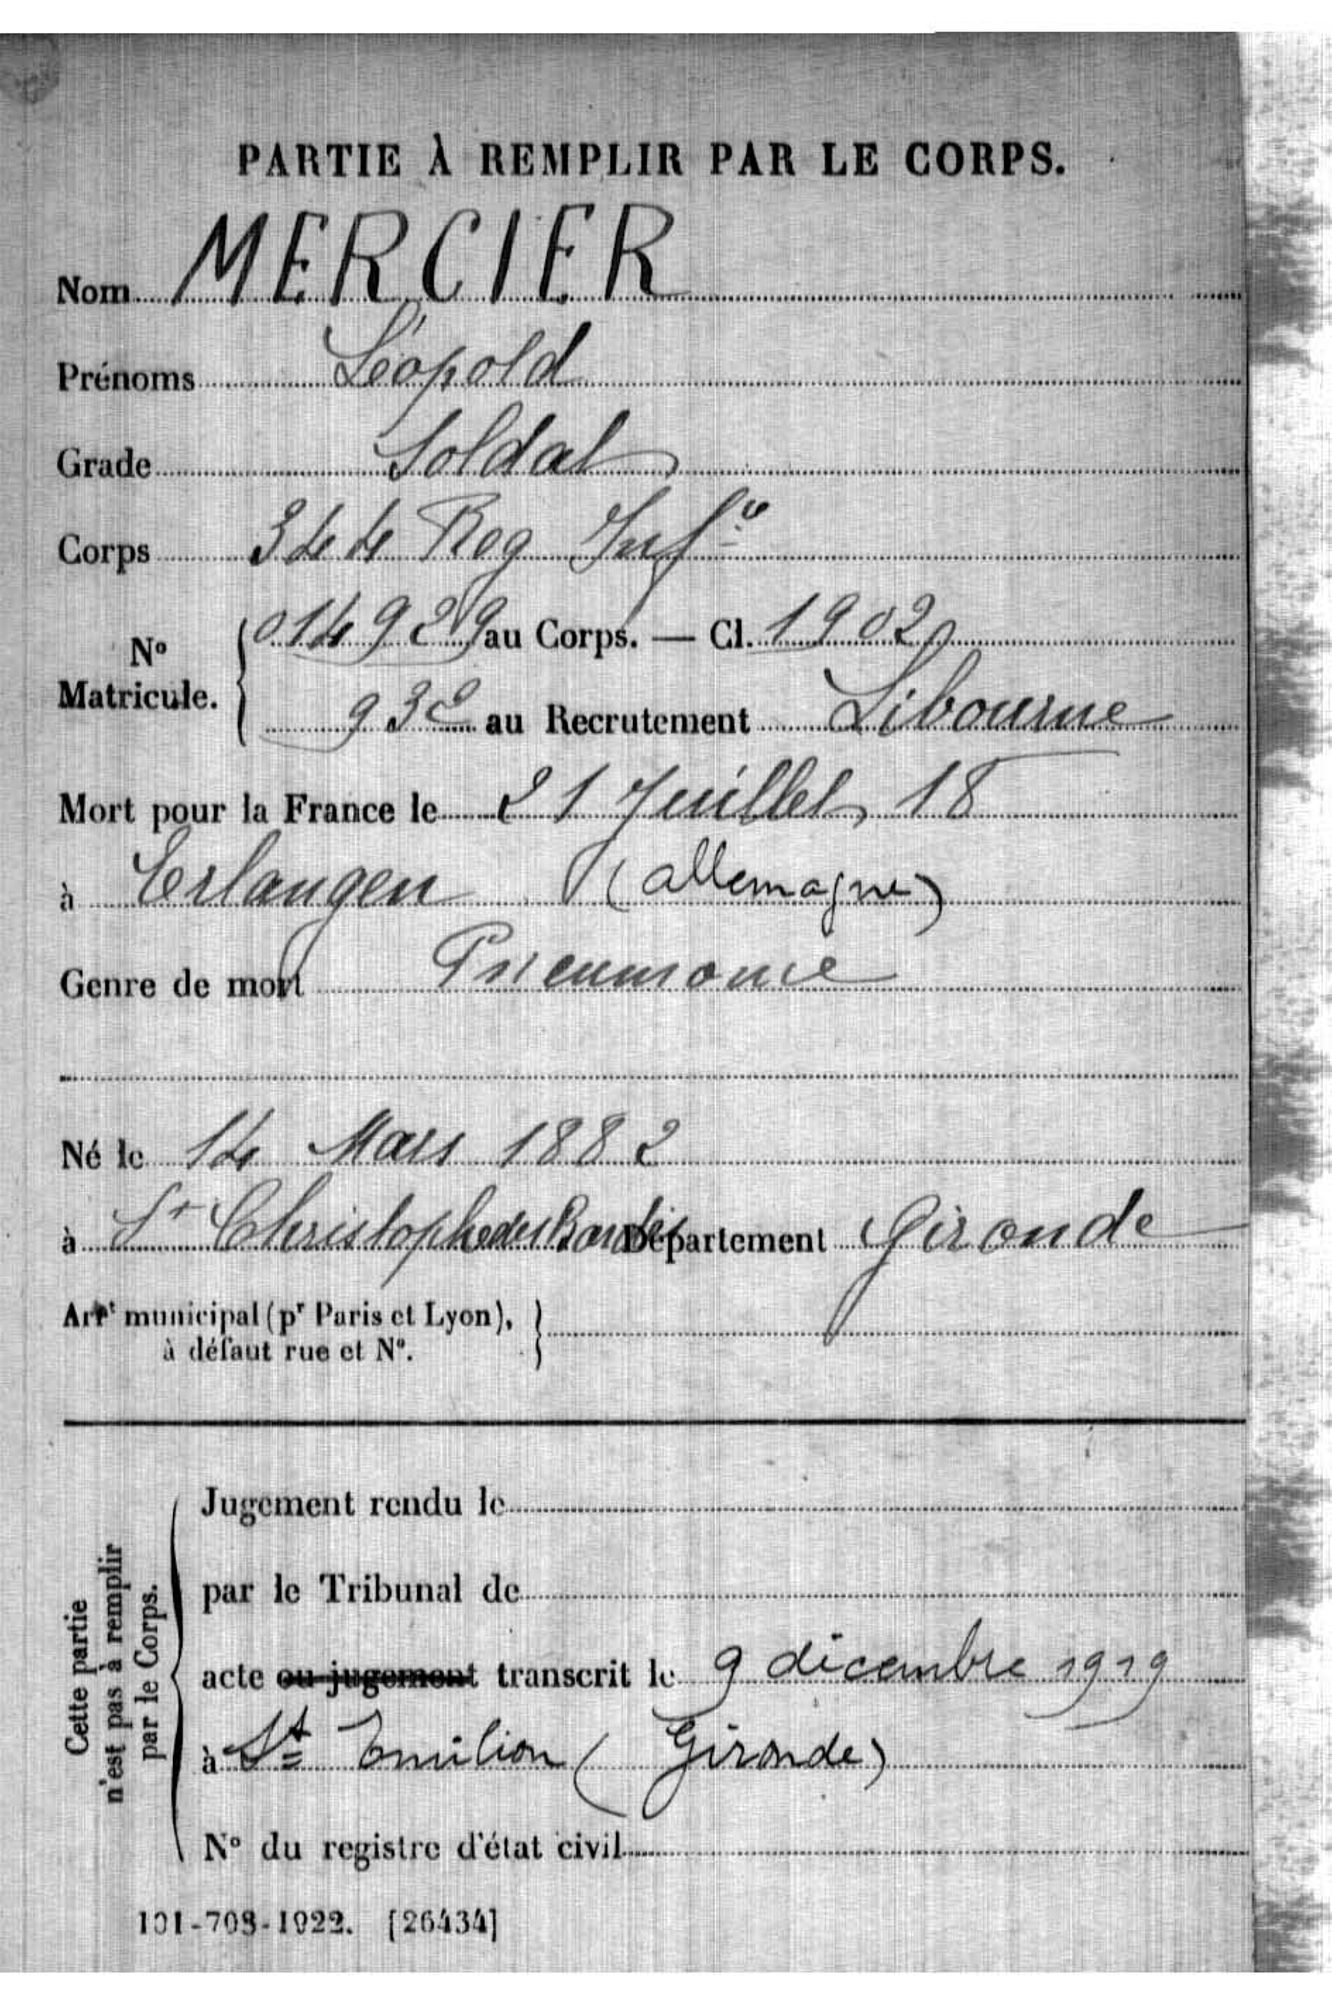 PARTIE À REMPLIR PAR LE CORPS.
Nom MERCIER
Prénoms Léopold
Grade Soldat
Corps 344 Reg Infie
N° Matricule. 014929 au Corps. — Cl. 1902
au Recrutement Libourne
Mort pour la France le 21 Juillet 18
à Erlangen (allemagne)
Genre de mort Pneumonie
Né le 14 Mars 1882
à St Christophe des Bardes Département Gironde
Arrt municipal (pr Paris et Lyon),
à défaut rue et N°.
Cette partie
n'est pas à remplir
par le Corps.
Jugement rendu le
par le Tribunal de
acte ou jugement transcrit le 9 décembre 1919
à St Emilion (Gironde)
N° du registre d'état civil
101-708-1922. [26434]